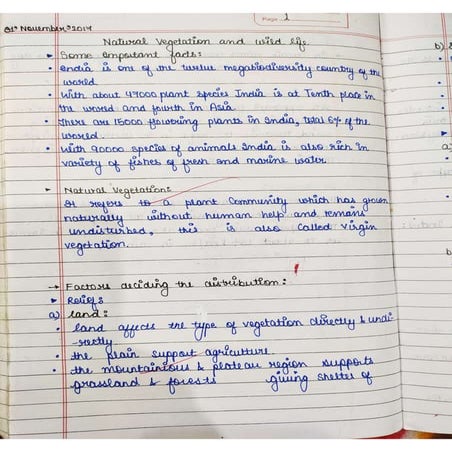 Page 1
01st November 2019
Natural Vegetation and wild life.
Some important facts:
India is one of the twelve megabiodiversity country of the
world.
With about 47000 plant species India is at Tenth place in
the world and fourth in Asia
There are 15000 flowering plants in India, total 6% of the
world.
With 90000 species of animals India is also rich in
variety of fishes of fresh and marine water
Natural Vegetation:
It refers to a plant Community which has grown
naturally without human help and remains
undisturbed, this is also called virgin
vegetation.
→ Factors deciding the distribution:
Reliefs
a) land:
land affects the type of vegetation directly & indi-
rectly.
the plain support agriculture.
the mountainious & plateau region supports
grassland & forests giving shelter of
b)
a)
b